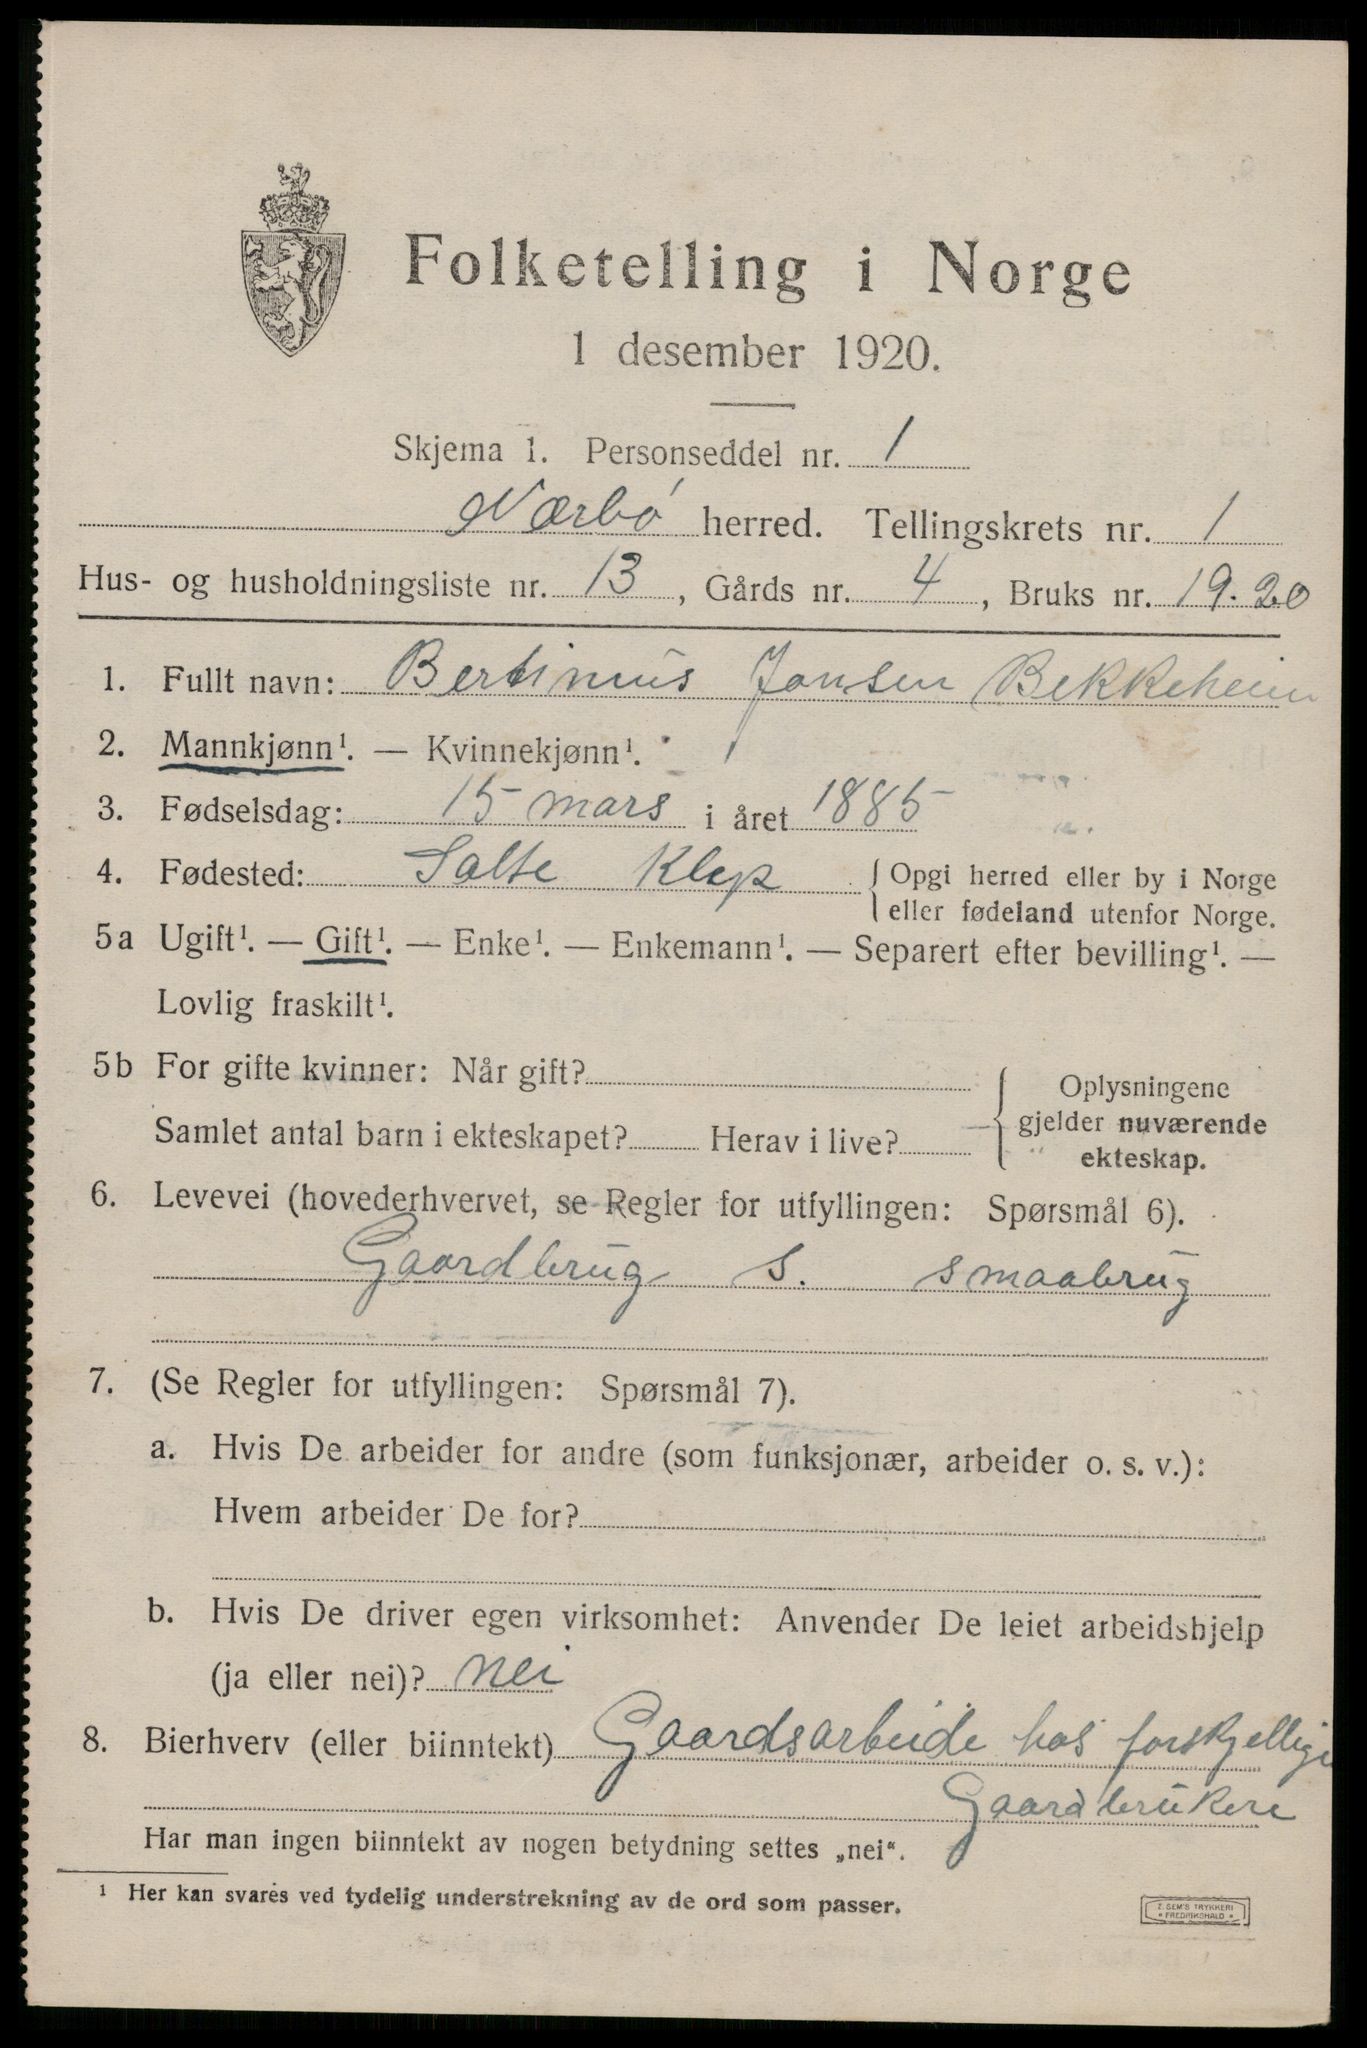 Folketelling i Norge
1 desember 1920.
Skjema 1. Personseddel nr. 1
Nærbö herred. Tellingskrets nr. 1
Hus- og husholdningsliste nr. 13, Gårds nr. 4, Bruks nr. 19.20
1. Fullt navn: Bertinius Jonsen Bekkeheim
2. Mannkjønn¹. — Kvinnekjønn¹.
3. Fødselsdag: 15 mars i året 1885
4. Fødested: Salte Klep { Opgi herred eller by i Norge
eller fødeland utenfor Norge.
5a Ugift¹. — Gift¹. — Enke¹. — Enkemann¹. — Separert efter bevilling¹. —
Lovlig fraskilt¹.
5b For gifte kvinner: Når gift?
Samlet antal barn i ekteskapet? Herav i live?
Oplysningene
gjelder nuværende
ekteskap.
6. Levevei (hovederhvervet, se Regler for utfyllingen: Spørsmål 6).
Gaardbrug S. smaabrug
7. (Se Regler for utfyllingen: Spørsmål 7).
a. Hvis De arbeider for andre (som funksjonær, arbeider o. s. v.):
Hvem arbeider De for?
b. Hvis De driver egen virksomhet: Anvender De leiet arbeidshjelp
(ja eller nei)? nei
8. Bierhverv (eller biinntekt) Gaardsarbeide hos forskjellige
Gaardbrukere
Har man ingen biinntekt av nogen betydning settes „nei“.
¹ Her kan svares ved tydelig understrekning av de ord som passer.
Z. SEM'S TRYKKERI
• FREDRIKSHALD •